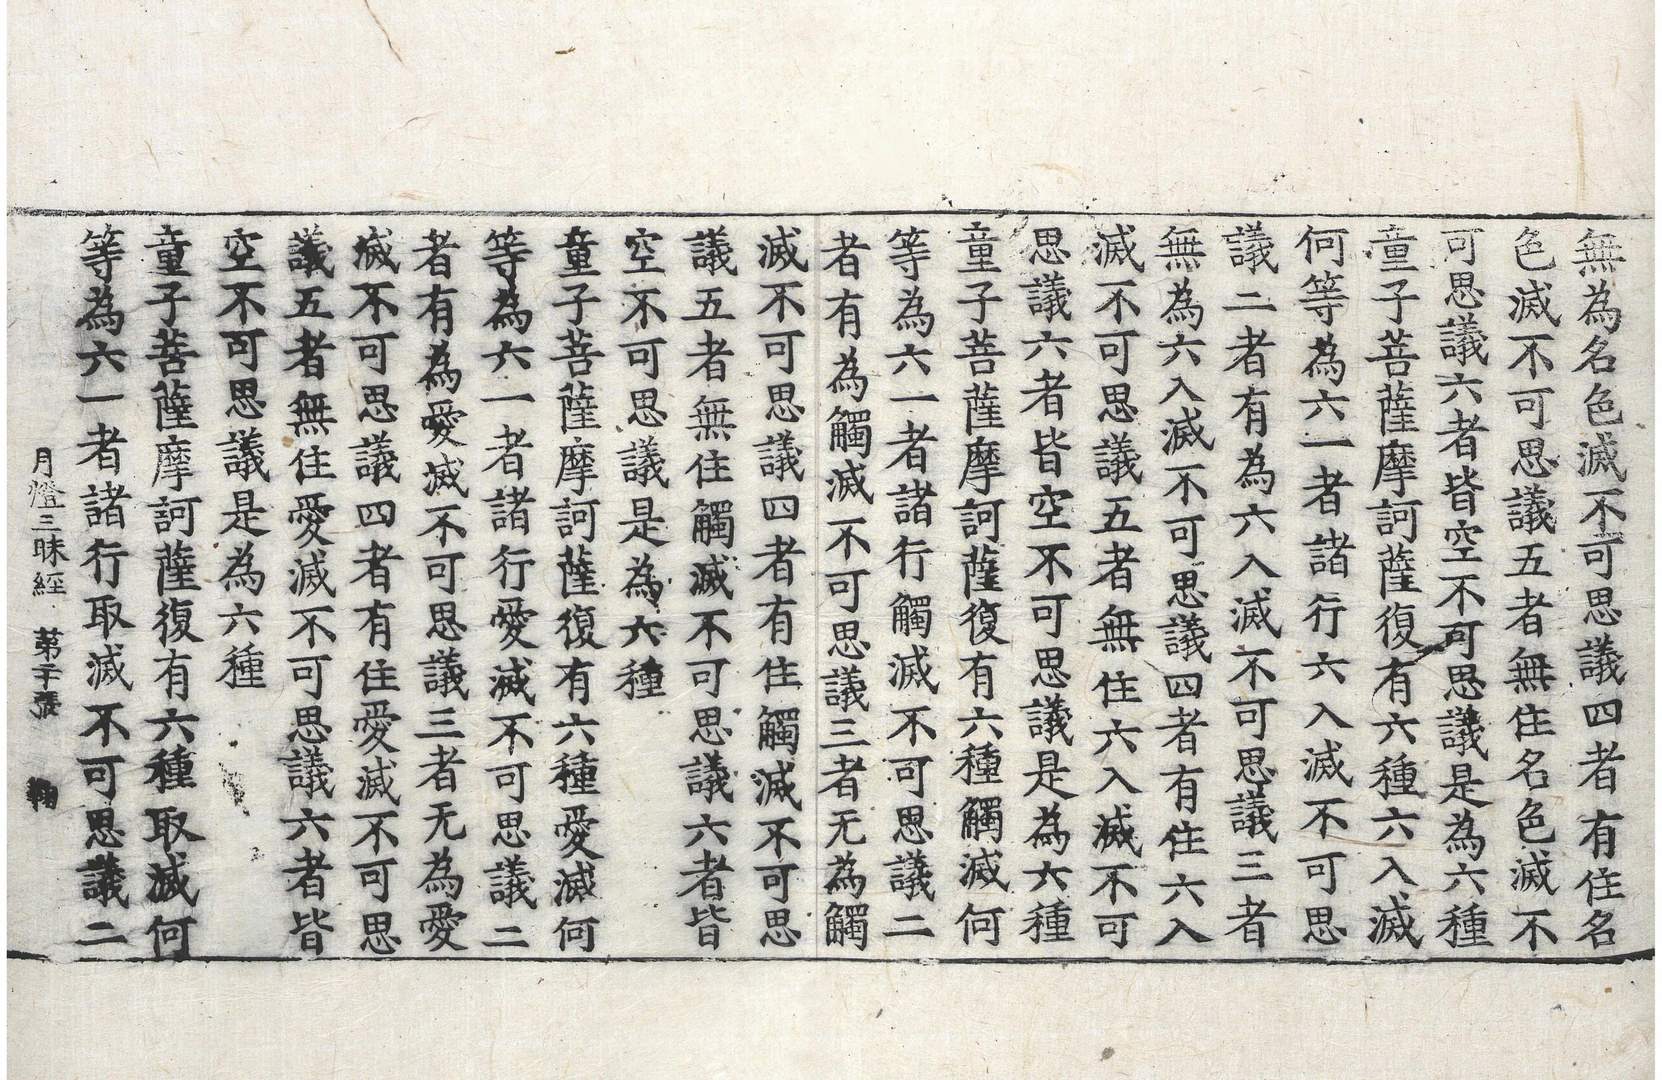 無為名色滅不可思議四者有住名
色滅不可思議五者無住名色滅不
可思議六者皆空不可思議是為六種
童子菩薩摩訶薩復有六種六入滅
何等為六一者諸行六入滅不可思
議二者有為六入滅不可思議三者
無為六入滅不可思議四者有住六入
滅不可思議五者無住六入滅不可
思議六者皆空不可思議是為六種
童子菩薩摩訶薩復有六種觸滅何
等為六一者諸行觸滅不可思議二
者有為觸滅不可思議三者无為觸
滅不可思議四者有住觸滅不可思
議五者無住觸滅不可思議六者皆
空不可思議是為六種
童子菩薩摩訶薩復有六種愛滅何
等為六一者諸行愛滅不可思議二
者有為愛滅不可思議三者无為愛
滅不可思議四者有住愛滅不可思
議五者無住愛滅不可思議六者皆
空不可思議是為六種
童子菩薩摩訶薩復有六種取滅何
等為六一者諸行取滅不可思議二
月燈三昧經 第張